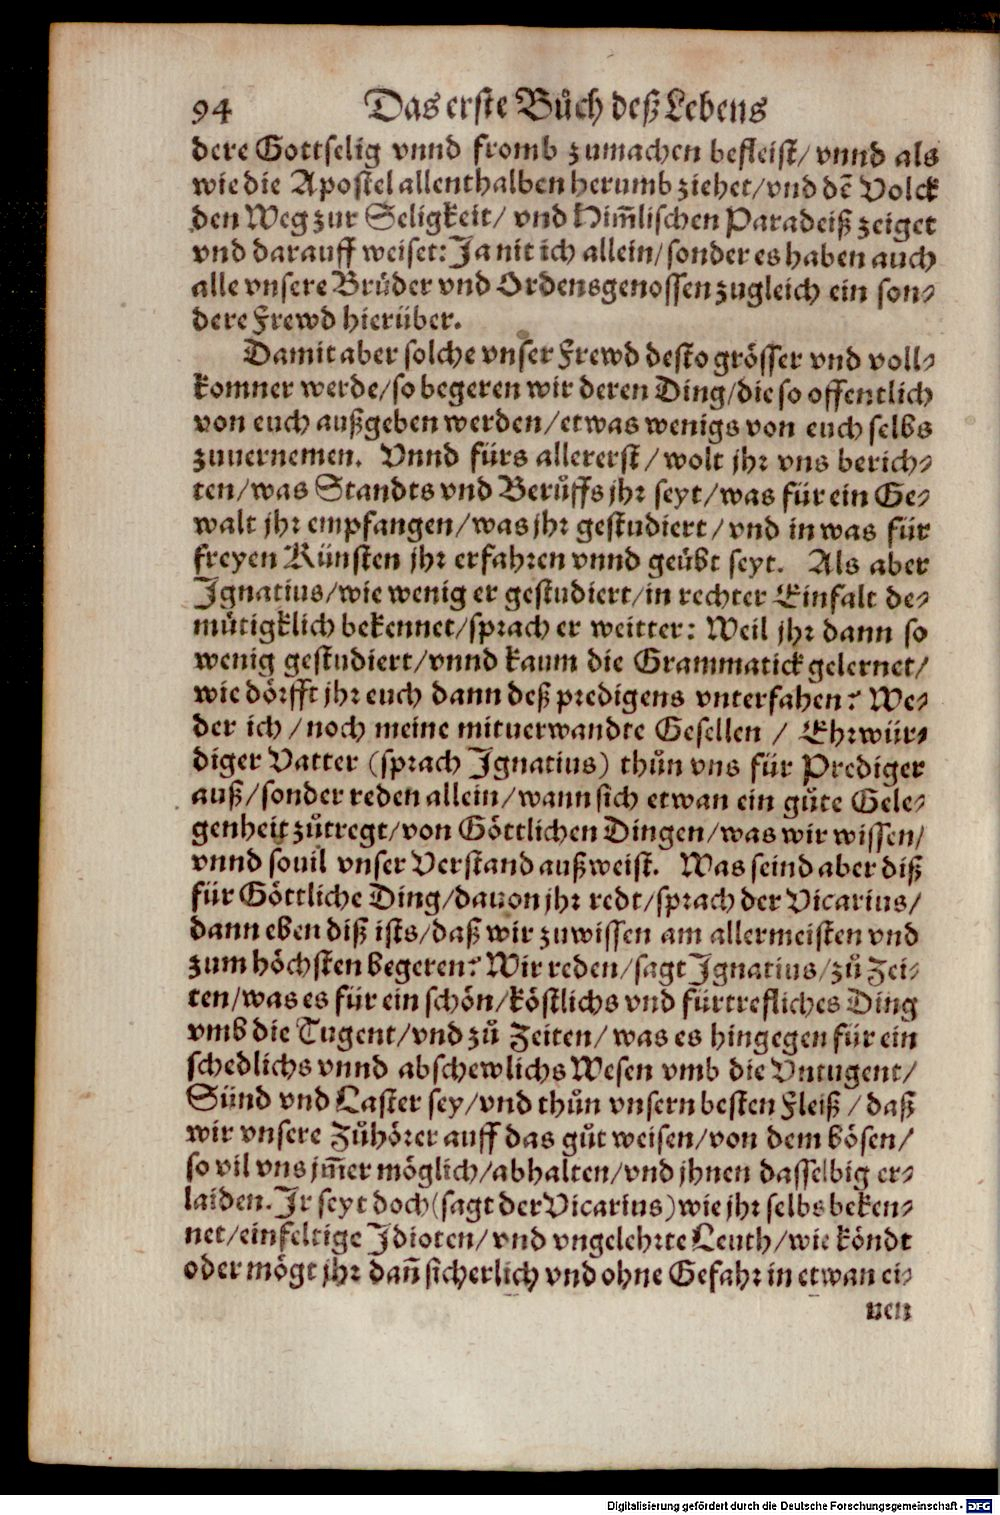 94 Das erste Bůch deß Lebens
dere Gottselig vnnd fromb zumachen befleist/ vnnd als
wie die Apostel allenthalben herumb ziehet/ vnd dẽ Volck
den Weg zur Seligkeit/ vnd Him̃lischen Paradeiß zeiget
vnd darauff weiset: Ja nit ich allein/ sonder es haben auch
alle vnsere Brüder vnd Ordensgenossen zugleich ein son-
dere Frewd hierüber.
Damit aber solche vnser Frewd desto grösser vnd voll-
komner werde/ so begeren wir deren Ding/ die so offentlich
von euch außgeben werden/ etwas wenigs von euch selbs
zuuernemen. Vnnd fürs allererst/ wolt jhr vns berich-
ten/ was Standts vnd Berůffs jhr seyt/ was für ein Ge-
walt jhr empfangen/ was jhr gestudiert/ vnd in was für
freyen Künsten jhr erfahren vnnd geübt seyt. Als aber
Ignatius/ wie wenig er gestudiert/ in rechter Einfalt de-
mütigklich bekennet/ sprach er weitter: Weil jhr dann so
wenig gestudiert/ vnnd kaum die Grammatick gelernet/
wie dörfft jhr euch dann deß predigens vnterfahen? We-
der ich / noch meine mituerwandte Gesellen / Ehrwür-
diger Vatter (sprach Ignatius) thůn vns für Prediger
auß/ sonder reden allein/ wann sich etwan ein gůte Gele-
genheit zůtregt/ von Göttlichen Dingen/ was wir wissen/
vnnd souil vnser Verstand außweist. Was seind aber diß
für Göttliche Ding/ dauon jhr redt/ sprach der Vicarius/
dann eben diß ists/ daß wir zuwissen am allermeisten vnd
zum höchsten begeren? Wir reden/ sagt Ignatius/ zů Zei-
ten/ was es für ein schön/ köstlichs vnd fürtrefliches Ding
vmb die Tugent/ vnd zů Zeiten/ was es hingegen für ein
schedlichs vnnd abschewlichs Wesen vmb die Vntugent/
Sünd vnd Laster sey/ vnd thůn vnsern besten Fleiß / daß
wir vnsere Zůhörer auff das gůt weisen/ von dem bösen/
so vil vns jm̃er möglich/ abhalten/ vnd jhnen dasselbig er-
laiden. Jr seyt doch (sagt der Vicarius) wie jhr selbs beken-
net/ einfeltige Idioten/ vnd vngelehrte Leuth/ wie köndt
oder mögt jhr dañ sicherlich vnd ohne Gefahr in etwan ei-
nen
Digitalisierung gefördert durch die Deutsche Forschungsgemeinschaft - DFG